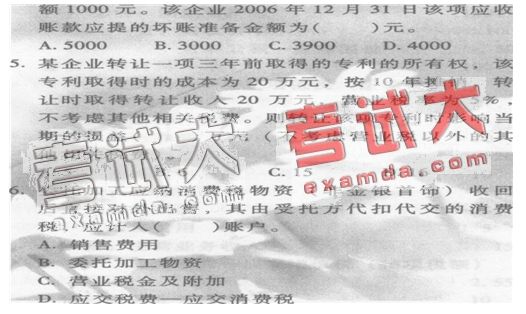 额1000元。该企业2006年12月31日该项应收
账款应提的坏账准备金额为( )元。
A. 5000 B. 3000 C. 3900 D. 4000
5. 某企业转让一项三年前取得的专利的所有权,该
专利取得时的成本为20万元,按10年摊销 转
让时取得转让收入20万元,营业税率为 %,
不考虑其他相关税费。则转让该项专利时影响当
期的损 考虑营业税以外的其
C. 15
6. 加工应纳消费税物资 金银首饰)收回
后直接对外出售,其由受托方代扣代交的消费
税,应计入( )账户。
A. 销售费用
B. 委托加工物资
C. 营业税金及附加
D. 应交税费—应交消费税
考试大
examda.com
考试大
examda.com